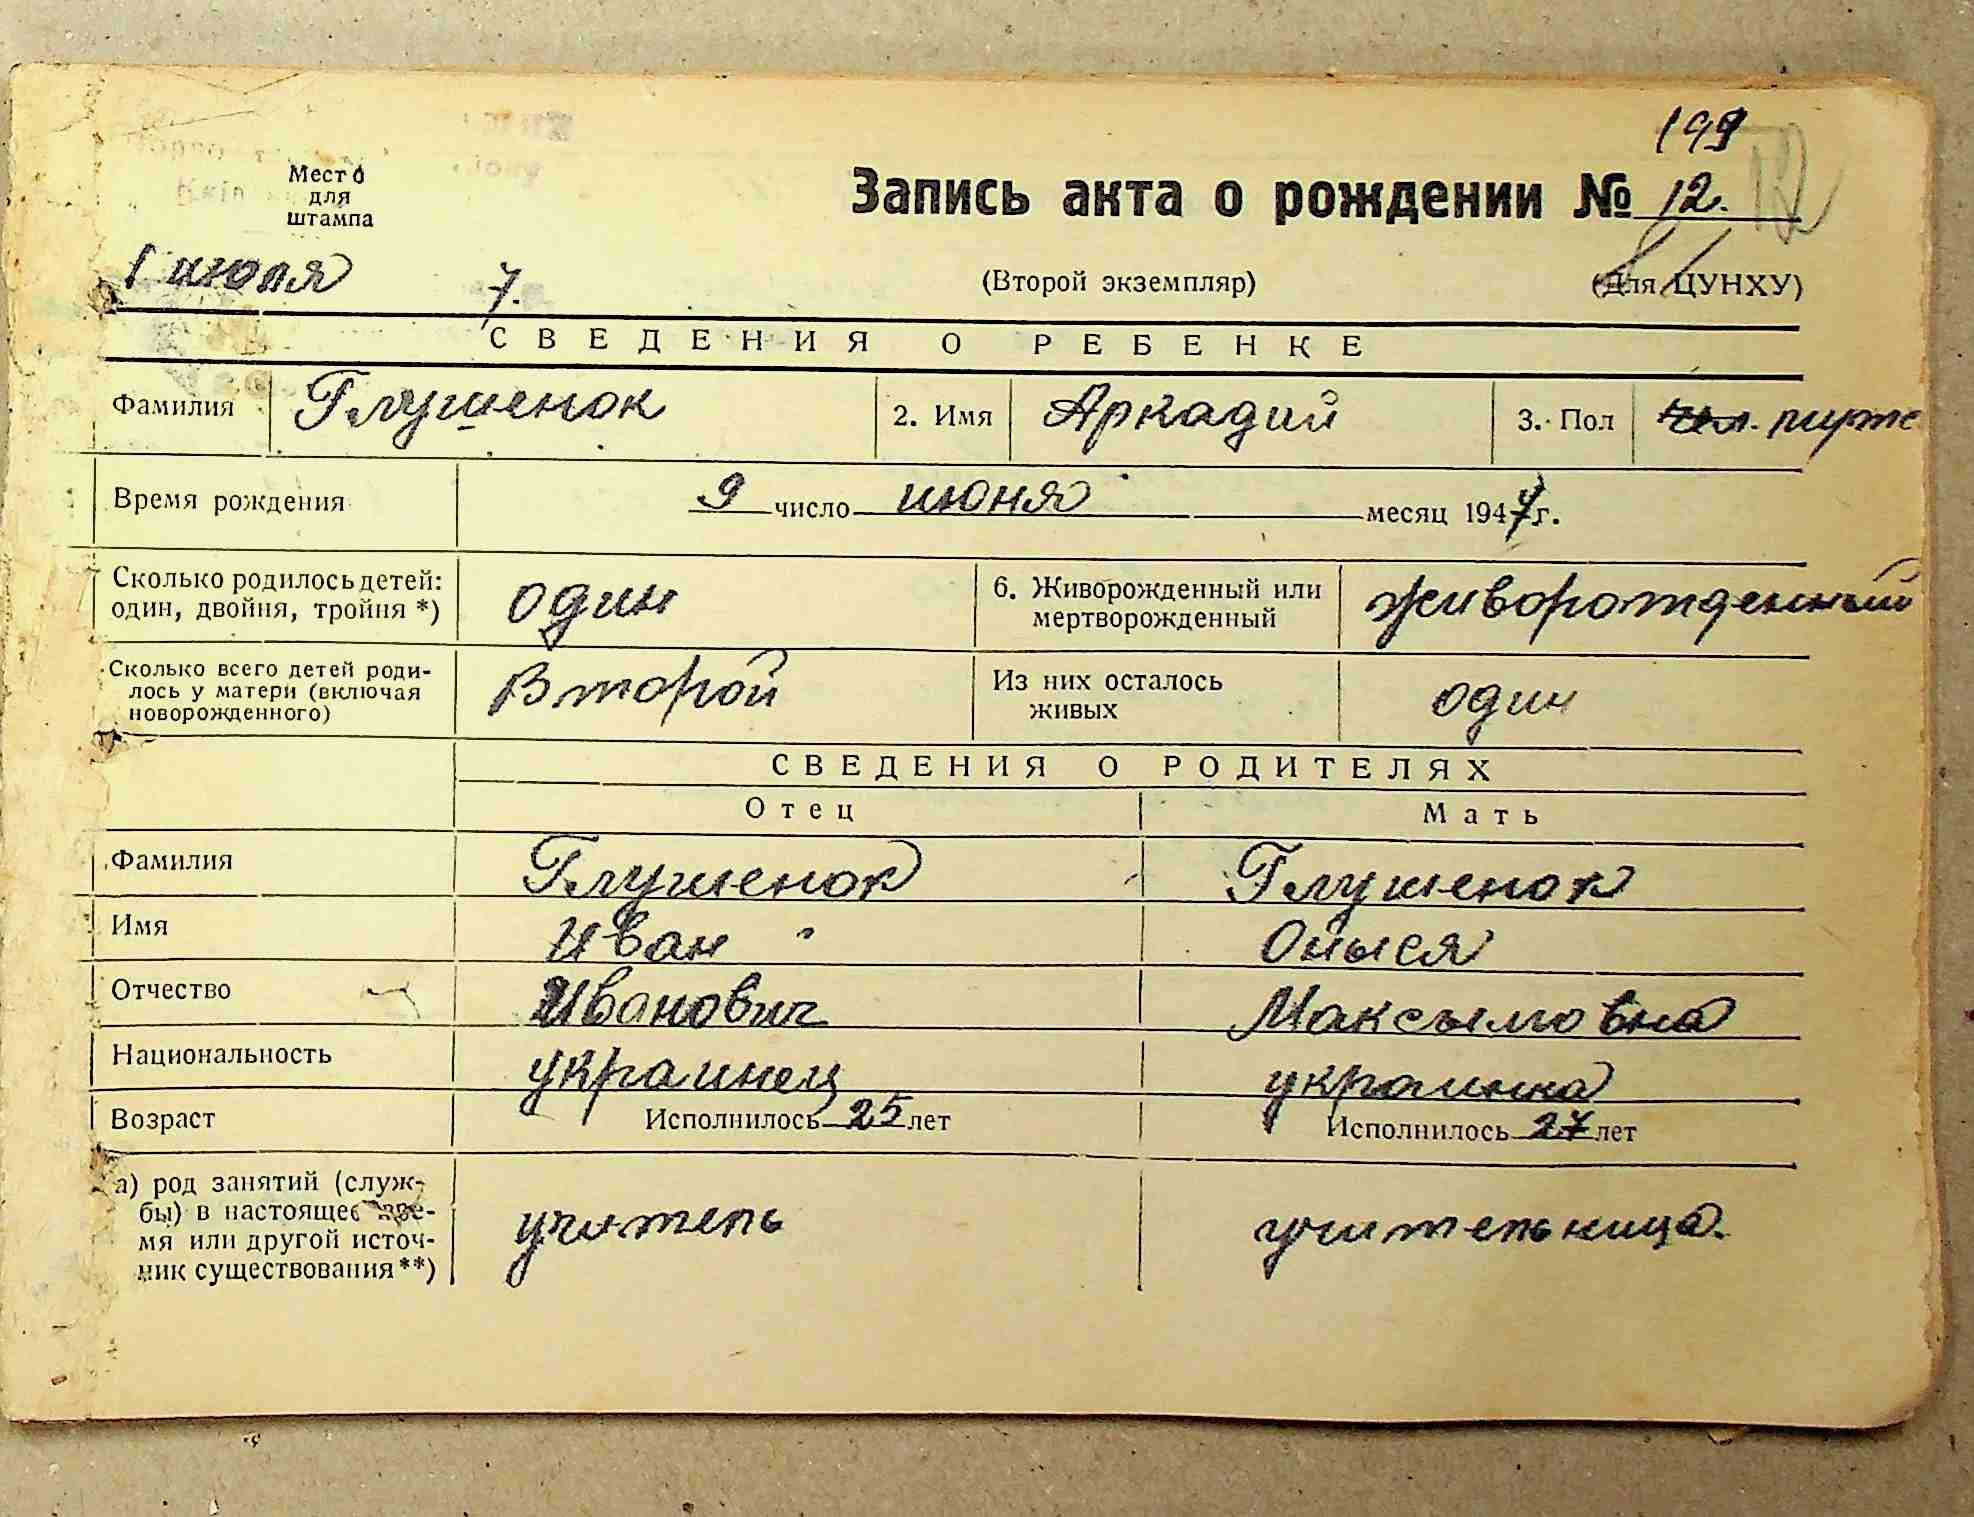 199
Место
для
штампа
Запись акта о рождении № 12.
1 июля 7.
(Второй экземпляр) (Для ЦУНХУ)
СВЕДЕНИЯ О РЕБЕНКЕ
Фамилия Глушенок 2. Имя Аркадий 3. Пол
Время рождения 9 число июня месяц 1947 г.
Сколько родилось детей: один 6. Живорожденный или живорожденный
один, двойня, тройня *) мертворожденный
Сколько всего детей роди- Второй Из них осталось один
лось у матери (включая живых
новорожденного)
СВЕДЕНИЯ О РОДИТЕЛЯХ
Отец Мать
Фамилия Глушенок Глушенок
Имя Иван Оныся
Отчество Иванович Максымовна
Национальность украинец украинка
Возраст Исполнилось 25 лет Исполнилось 27 лет
а) род занятий (служ-
бы) в настоящее вре- учитель учительница.
мя или другой источ-
ник существования**)